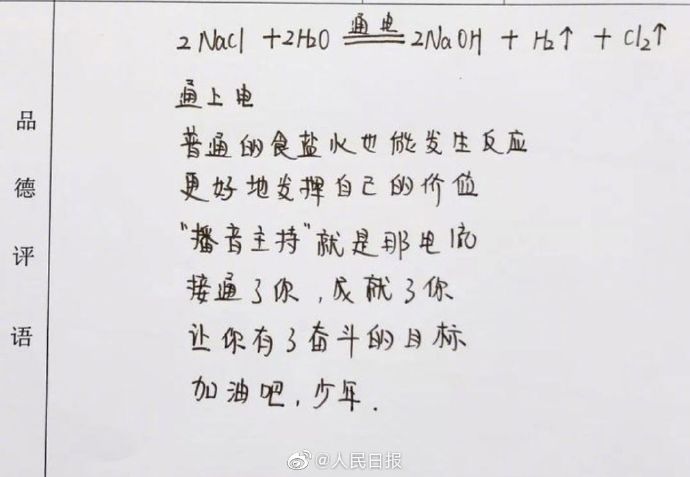 2NaCl + 2H2O 通电 2NaOH + H2↑ + Cl2↑
通上电
普通的食盐水也能发生反应
更好地发挥自己的价值
"播音主持"就是那电流
接通了你，成就了你
让你有了奋斗的目标
加油吧，少年.
品德评语
@人民日报